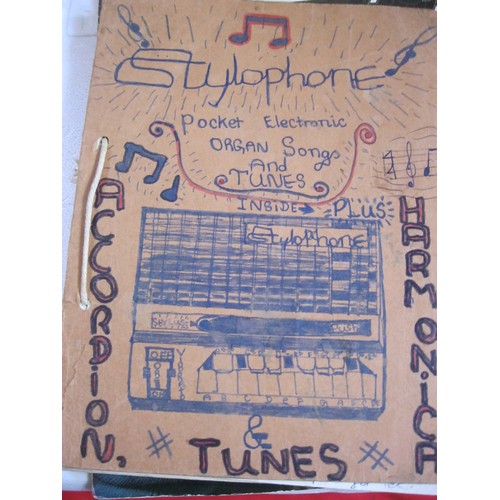 Stylophone
Pocket Electronic
ORGAN Songs
And
TUNES
INSIDE → PLUS
ACCORDION,
HARMONICA
Stylophone
OFF
ON
A B C D E F G A B C
& 
# TUNES #